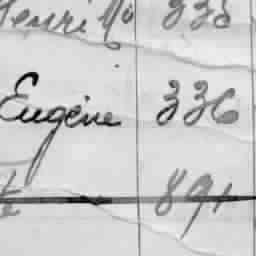 Henri Mo 335
Eugène 336
891